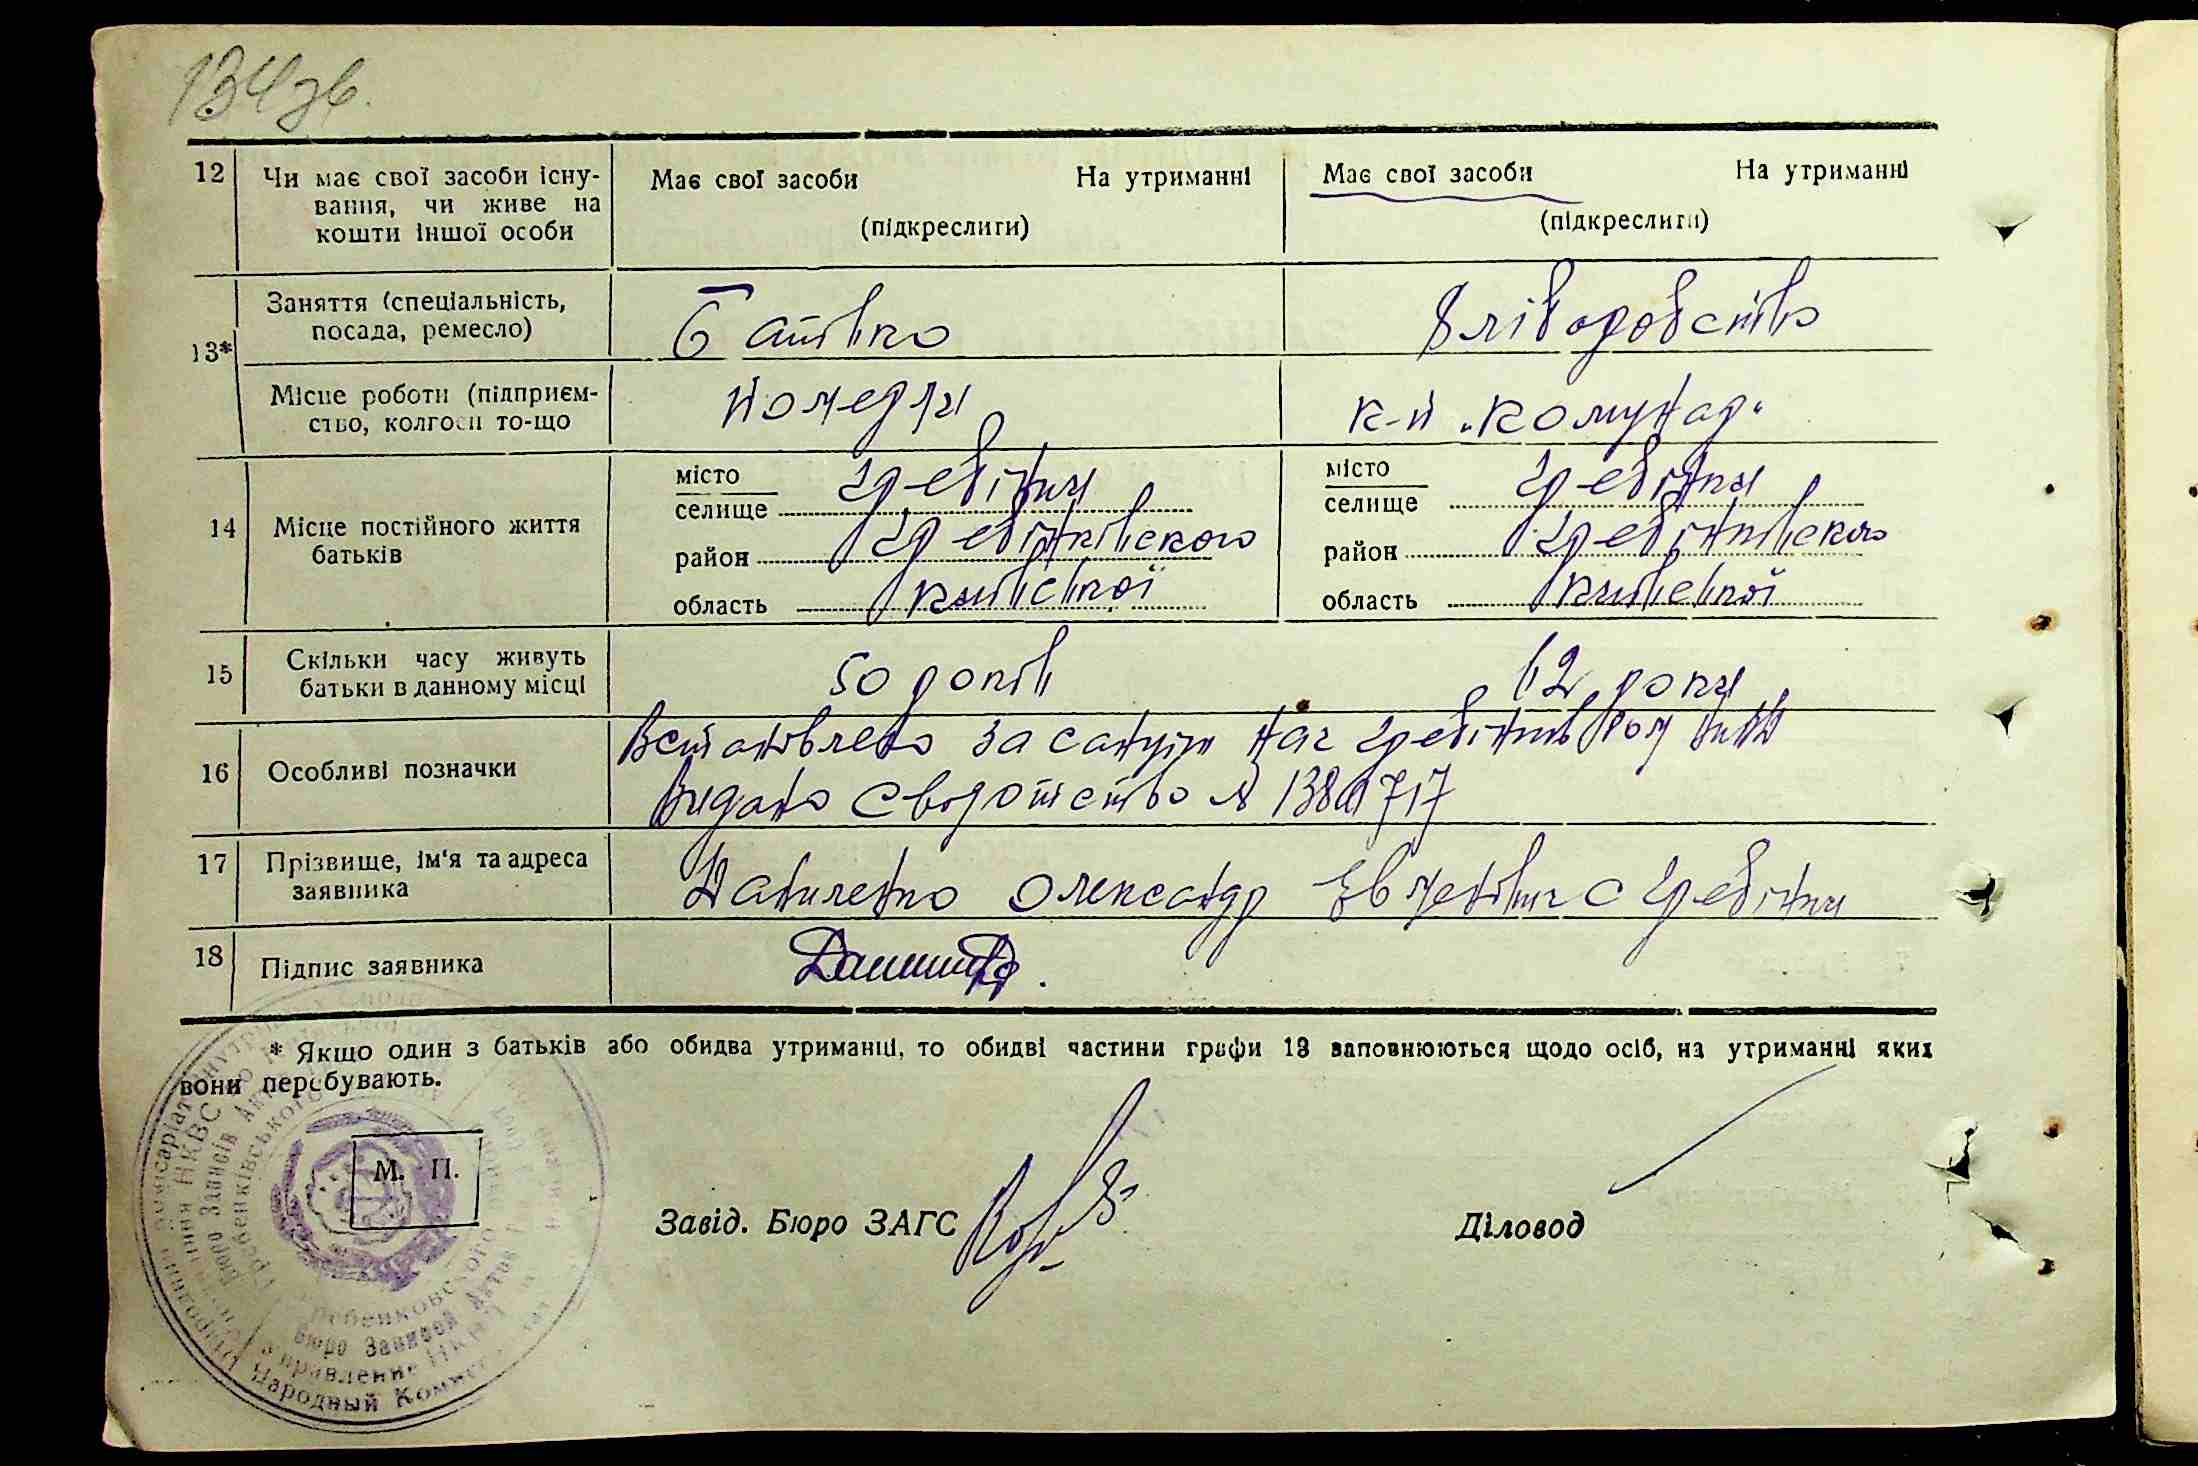 134 зв.
12 Чи має свої засоби існу-
вання, чи живе на
кошти іншої особи
Має свої засоби На утриманні
(підкреслити)
Має свої засоби На утриманні
(підкреслити)
13* Заняття (спеціальність,
посада, ремесло)
Батько
Хліборобство
Місце роботи (підприєм-
ство, колгосп то-що
помер
к-п "Комунар"
14 Місце постійного життя
батьків
місто
селище Гребінки
район Гребінківського
область Київської
місто
селище Гребінки
район Гребінківского
область Київської
15 Скільки часу живуть
батьки в данному місці
50 років
62 роки
16 Особливі позначки
Встановлено за санкцією нач Гребінків НКВД
Видано Свідотство №
17 Прізвище, ім'я та адреса
заявника
Даниленко Олександр с Гребінки
18 Підпис заявника
* Якщо один з батьків або обидва утриманці, то обидві частини графи 13 заповнюються щодо осіб, на утриманні яких
вони перебувають.
М. П.
Завід. Бюро ЗАГС
Діловод
Бюро Записів
Гребенківського
Гребенковского
Бюро Записей Актов
Управление НКВД
Народный Комисс